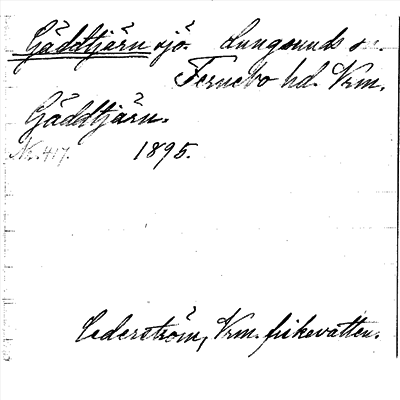 Gäddtjärn sjö. Lungsunds sn.
Fernebo hd. Vrm.
Gäddtjärn.
Nr. 417. 1895.
Cederström, Vrm. fiskevatten.